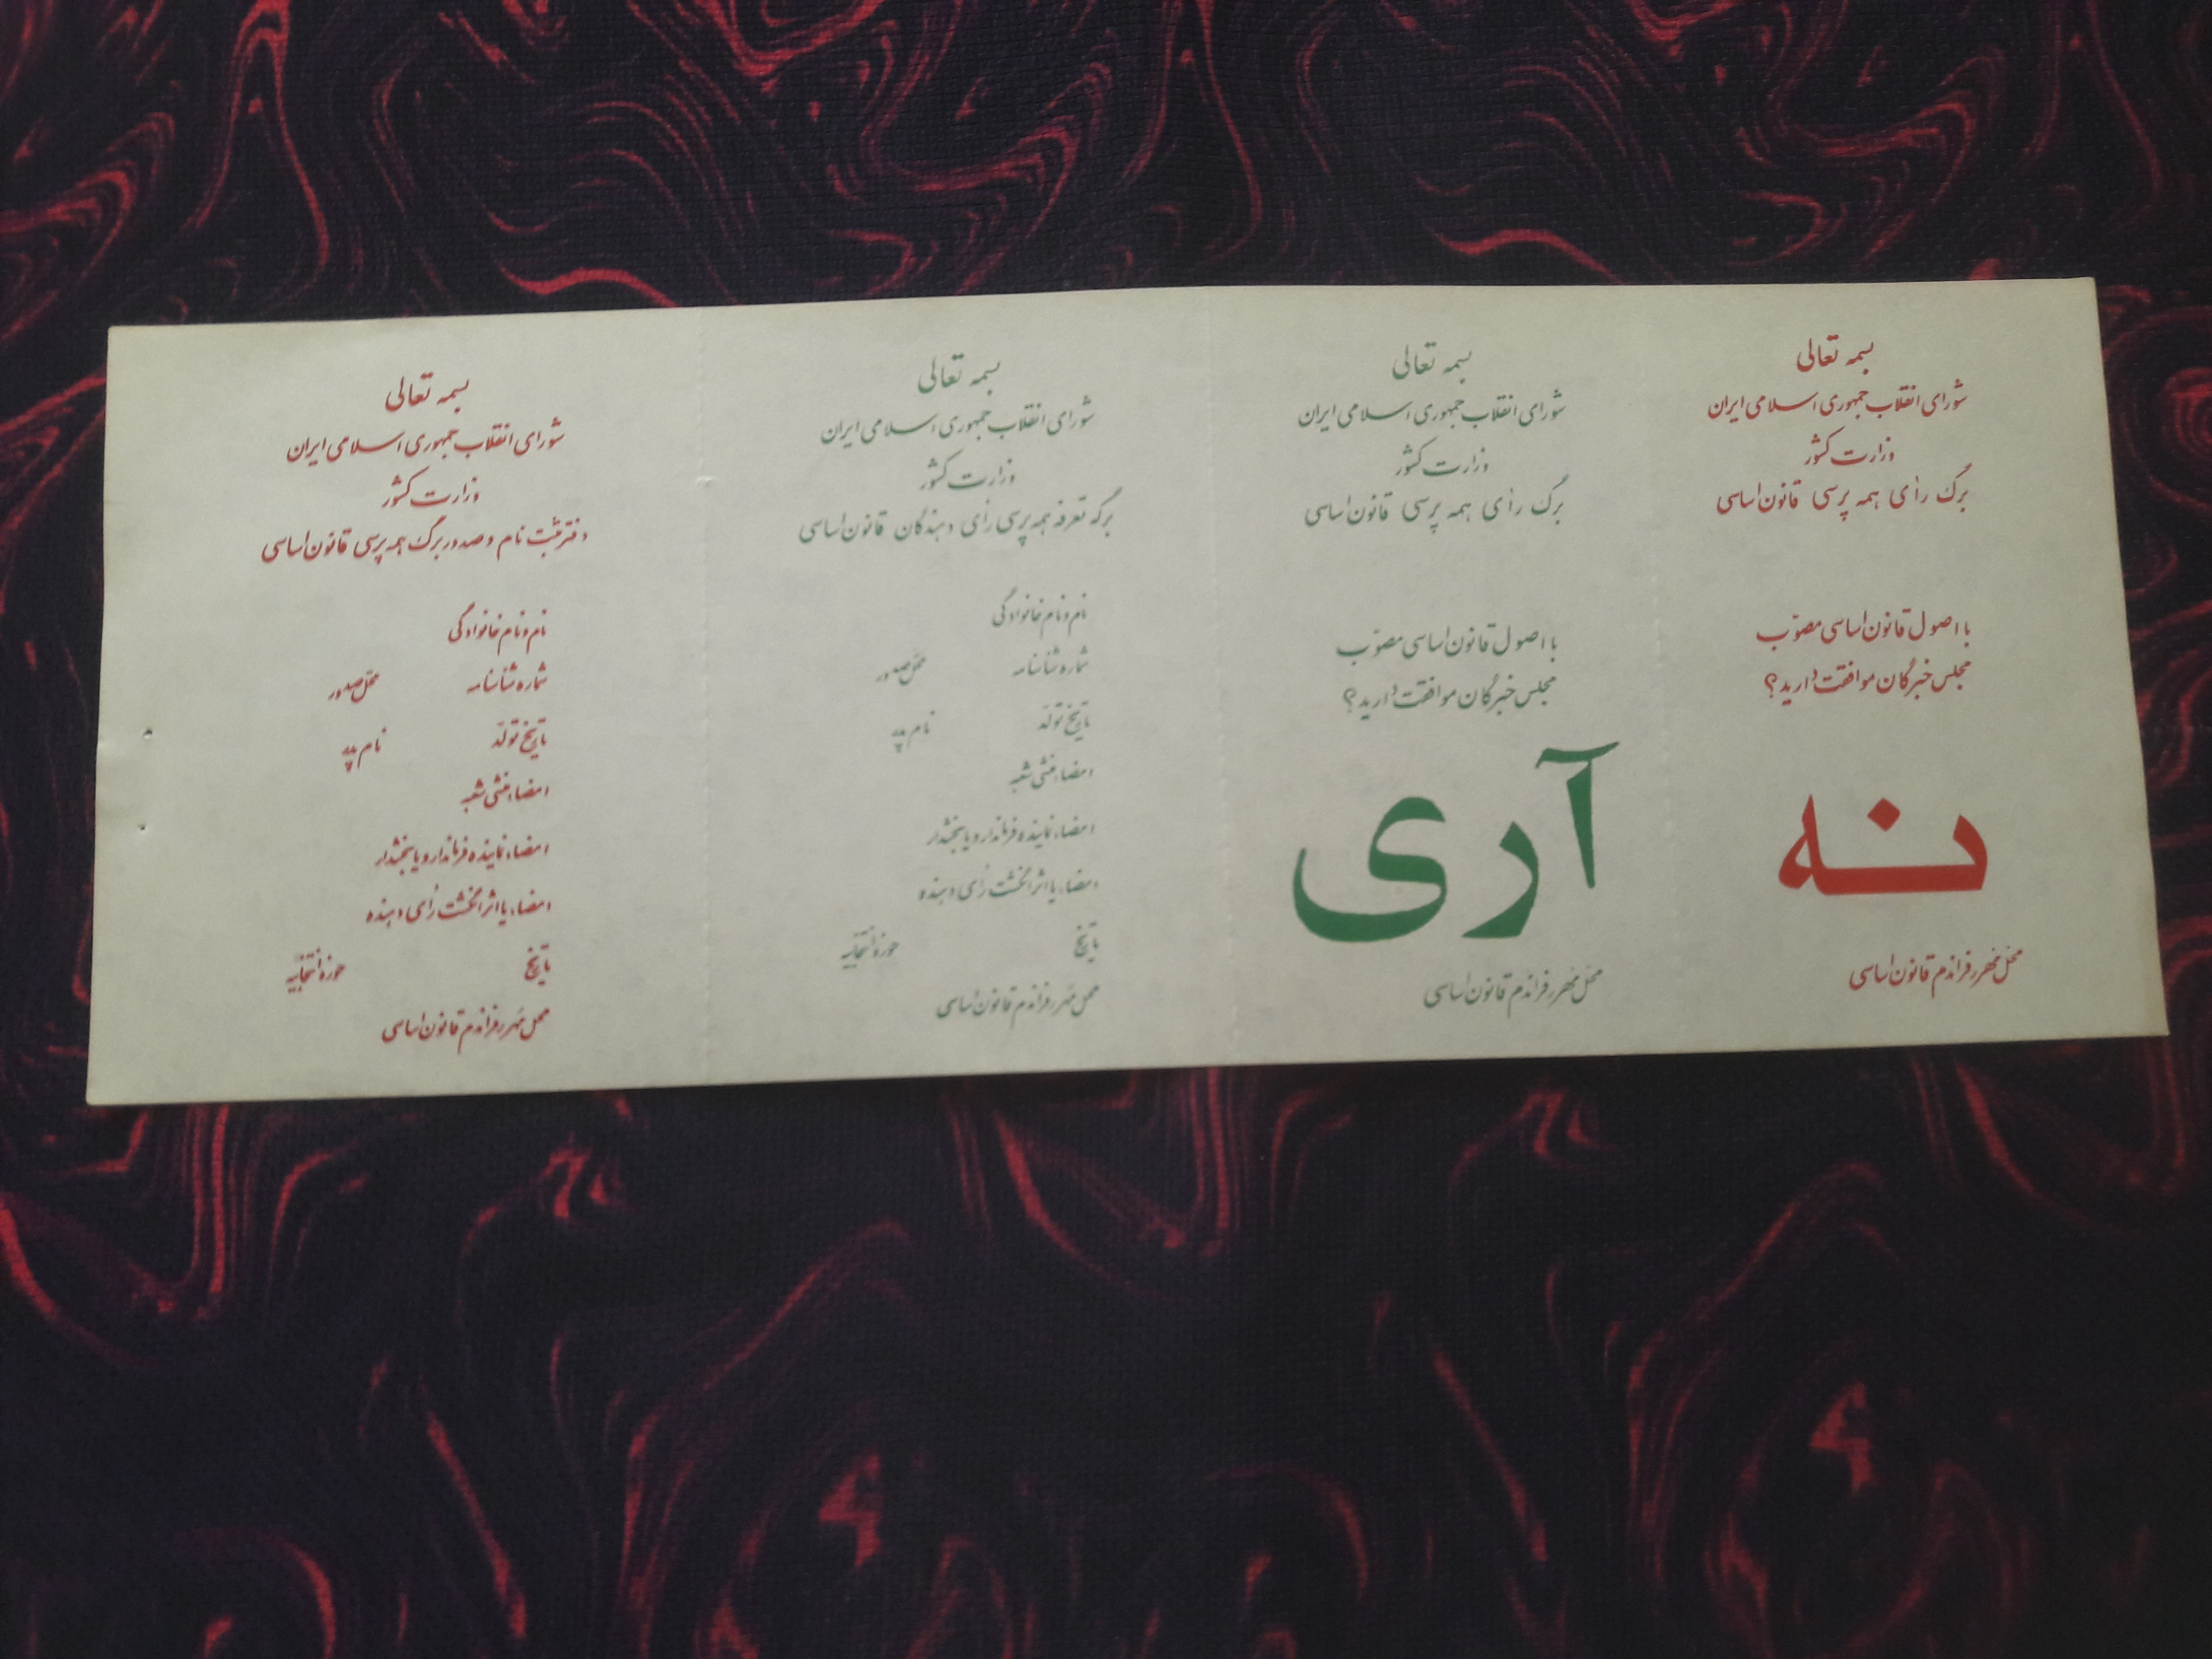 بسمه تعالی
شورای انقلاب جمهوری اسلامی ایران
وزارت کشور
برگ رأی همه پرسی قانون اساسی
با اصول قانون اساسی مصوّب
مجلس خبرگان موافقت دارید؟
نه
محل مهر رفراندم قانون اساسی
بسمه تعالی
شورای انقلاب جمهوری اسلامی ایران
وزارت کشور
برگ رأی همه پرسی قانون اساسی
با اصول قانون اساسی مصوّب
مجلس خبرگان موافقت دارید؟
آری
محل مهر رفراندم قانون اساسی
بسمه تعالی
شورای انقلاب جمهوری اسلامی ایران
وزارت کشور
برگه تعرفه همه پرسی رأی دهندگان قانون اساسی
نام و نام خانوادگی
شماره شناسنامه محل صدور
تاریخ تولد نام پدر
امضاء منشی شعبه
امضاء نماینده فرماندار و یا بخشدار
امضاء یا اثر انگشت رأی دهنده
تاریخ حوزه انتخابیه
محل مهر رفراندم قانون اساسی
بسمه تعالی
شورای انقلاب جمهوری اسلامی ایران
وزارت کشور
دفتر ثبت نام و صدور برگ همه پرسی قانون اساسی
نام و نام خانوادگی
شماره شناسنامه محل صدور
تاریخ تولد نام پدر
امضاء منشی شعبه
امضاء نماینده فرماندار و یا بخشدار
امضاء یا اثر انگشت رأی دهنده
تاریخ حوزه انتخابیه
محل مهر رفراندم قانون اساسی